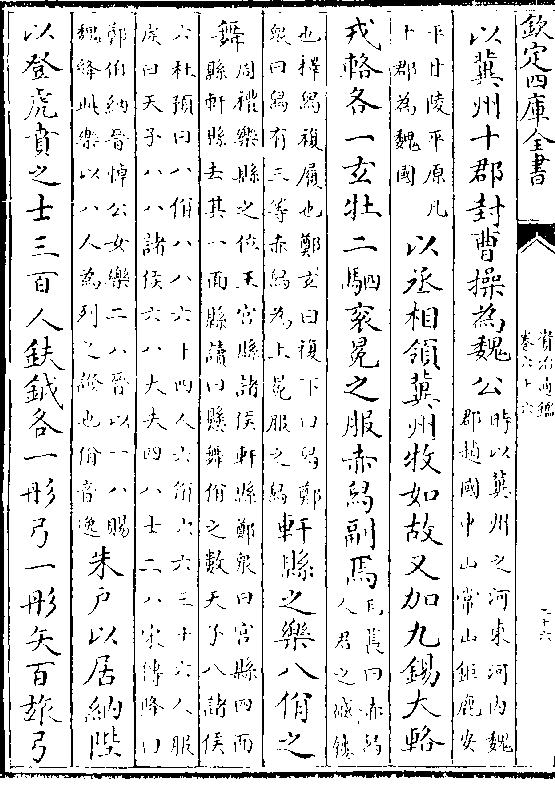 欽定四庫全書
資治通鑑
卷六十六
二十六
以冀州十郡封曹操為魏公
時以冀州之河東河内魏
郡趙國中山常山鉅鹿安
平甘陵平原凡
十郡為魏國
以丞相領冀州牧如故又加九錫大輅
戎輅各一玄牡二駟衮冕之服赤舄副焉
毛萇曰赤舄
人君之盛屨
也釋舄複履也鄭玄曰複下曰舄鄭
衆曰舄有三等赤舄為上冕服之舄
軒縣之樂八佾之
舞
周禮樂縣之位王宫縣諸侯軒縣鄭衆曰宫縣四面
縣軒縣去其一面縣讀曰縣舞佾之數天子八諸侯
六杜預曰八佾八八六十四人六佾六六三十六人服
虔曰天子八八諸侯六八大夫四八士二八宋傅隆曰
鄭伯納晉悼公女樂二八晉以一八賜
魏絳此樂以八人為列之證也佾音逸
朱戶以居納陛
以登虎賁之士三百人鈇鉞各一彤弓一彤矢百玈弓